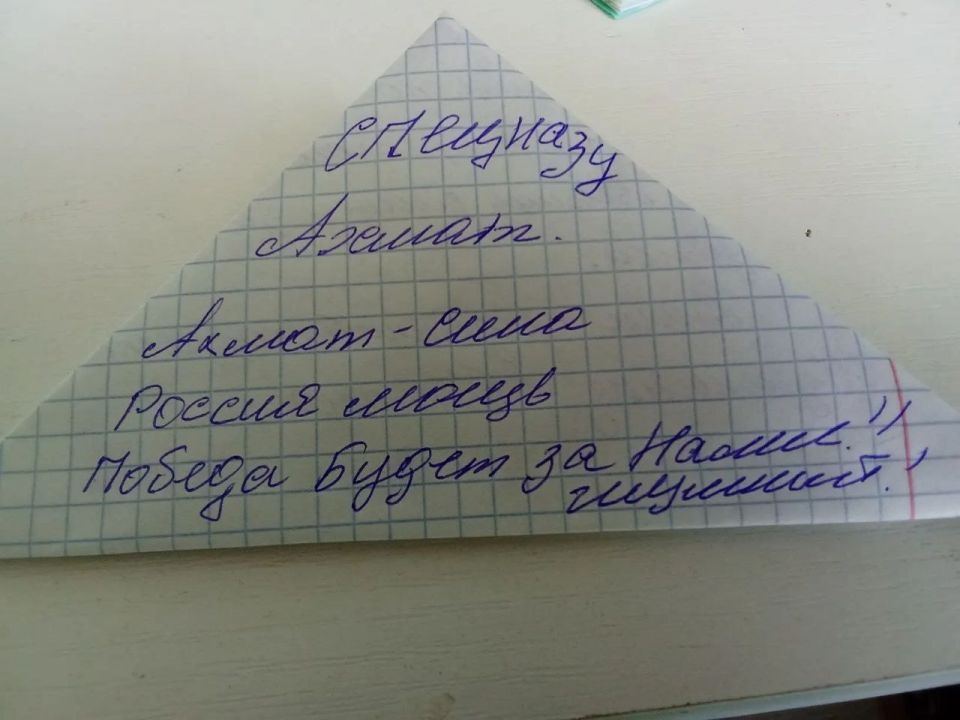 Спецназу
Ахмат.
Ахмат - сила
Россия мощь
Победа Будет за Нами.!!